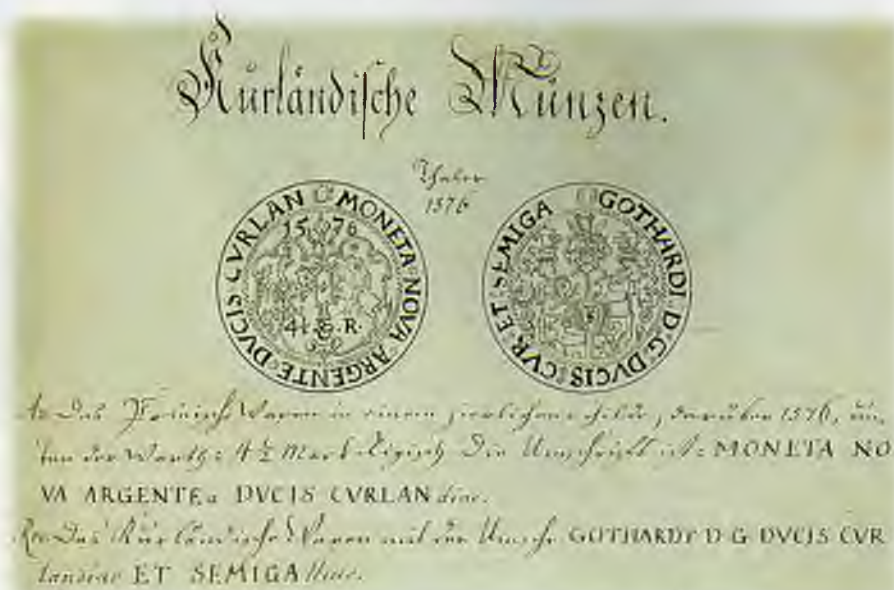 Kurländische Münzen.
Thaler
1576
MONETA NOVA ARGENTE DVCIS CVRLAN
15 76
4½ R.
GOTHARDI D G DVCIS CVR ET SEMIGA
Av. Das Wapen in einem zierlichen Schilde, darüber 1576, un,
ten der Werth: 4½ Mark Rigisch Die Umschrift ist: MONETA NO
VA ARGENTEa DVCIS CVRLANdiae.
Rev. Das Kurländische Wapen mit der Umschr. GOTHARDI D G DVCIS CVR
landiae ET SEMIGAlliae.